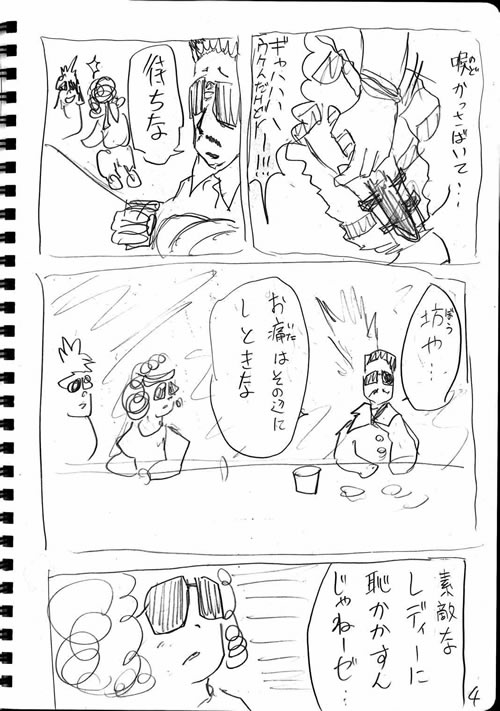 喉かっさばいて・・
のど
ギャハハハ
ウケんだけどー!!!
待ちな
坊や…
ぼう
お痛はその辺に
しときな
素敵な
レディーに
恥かかすん
じゃねーゼ…
4